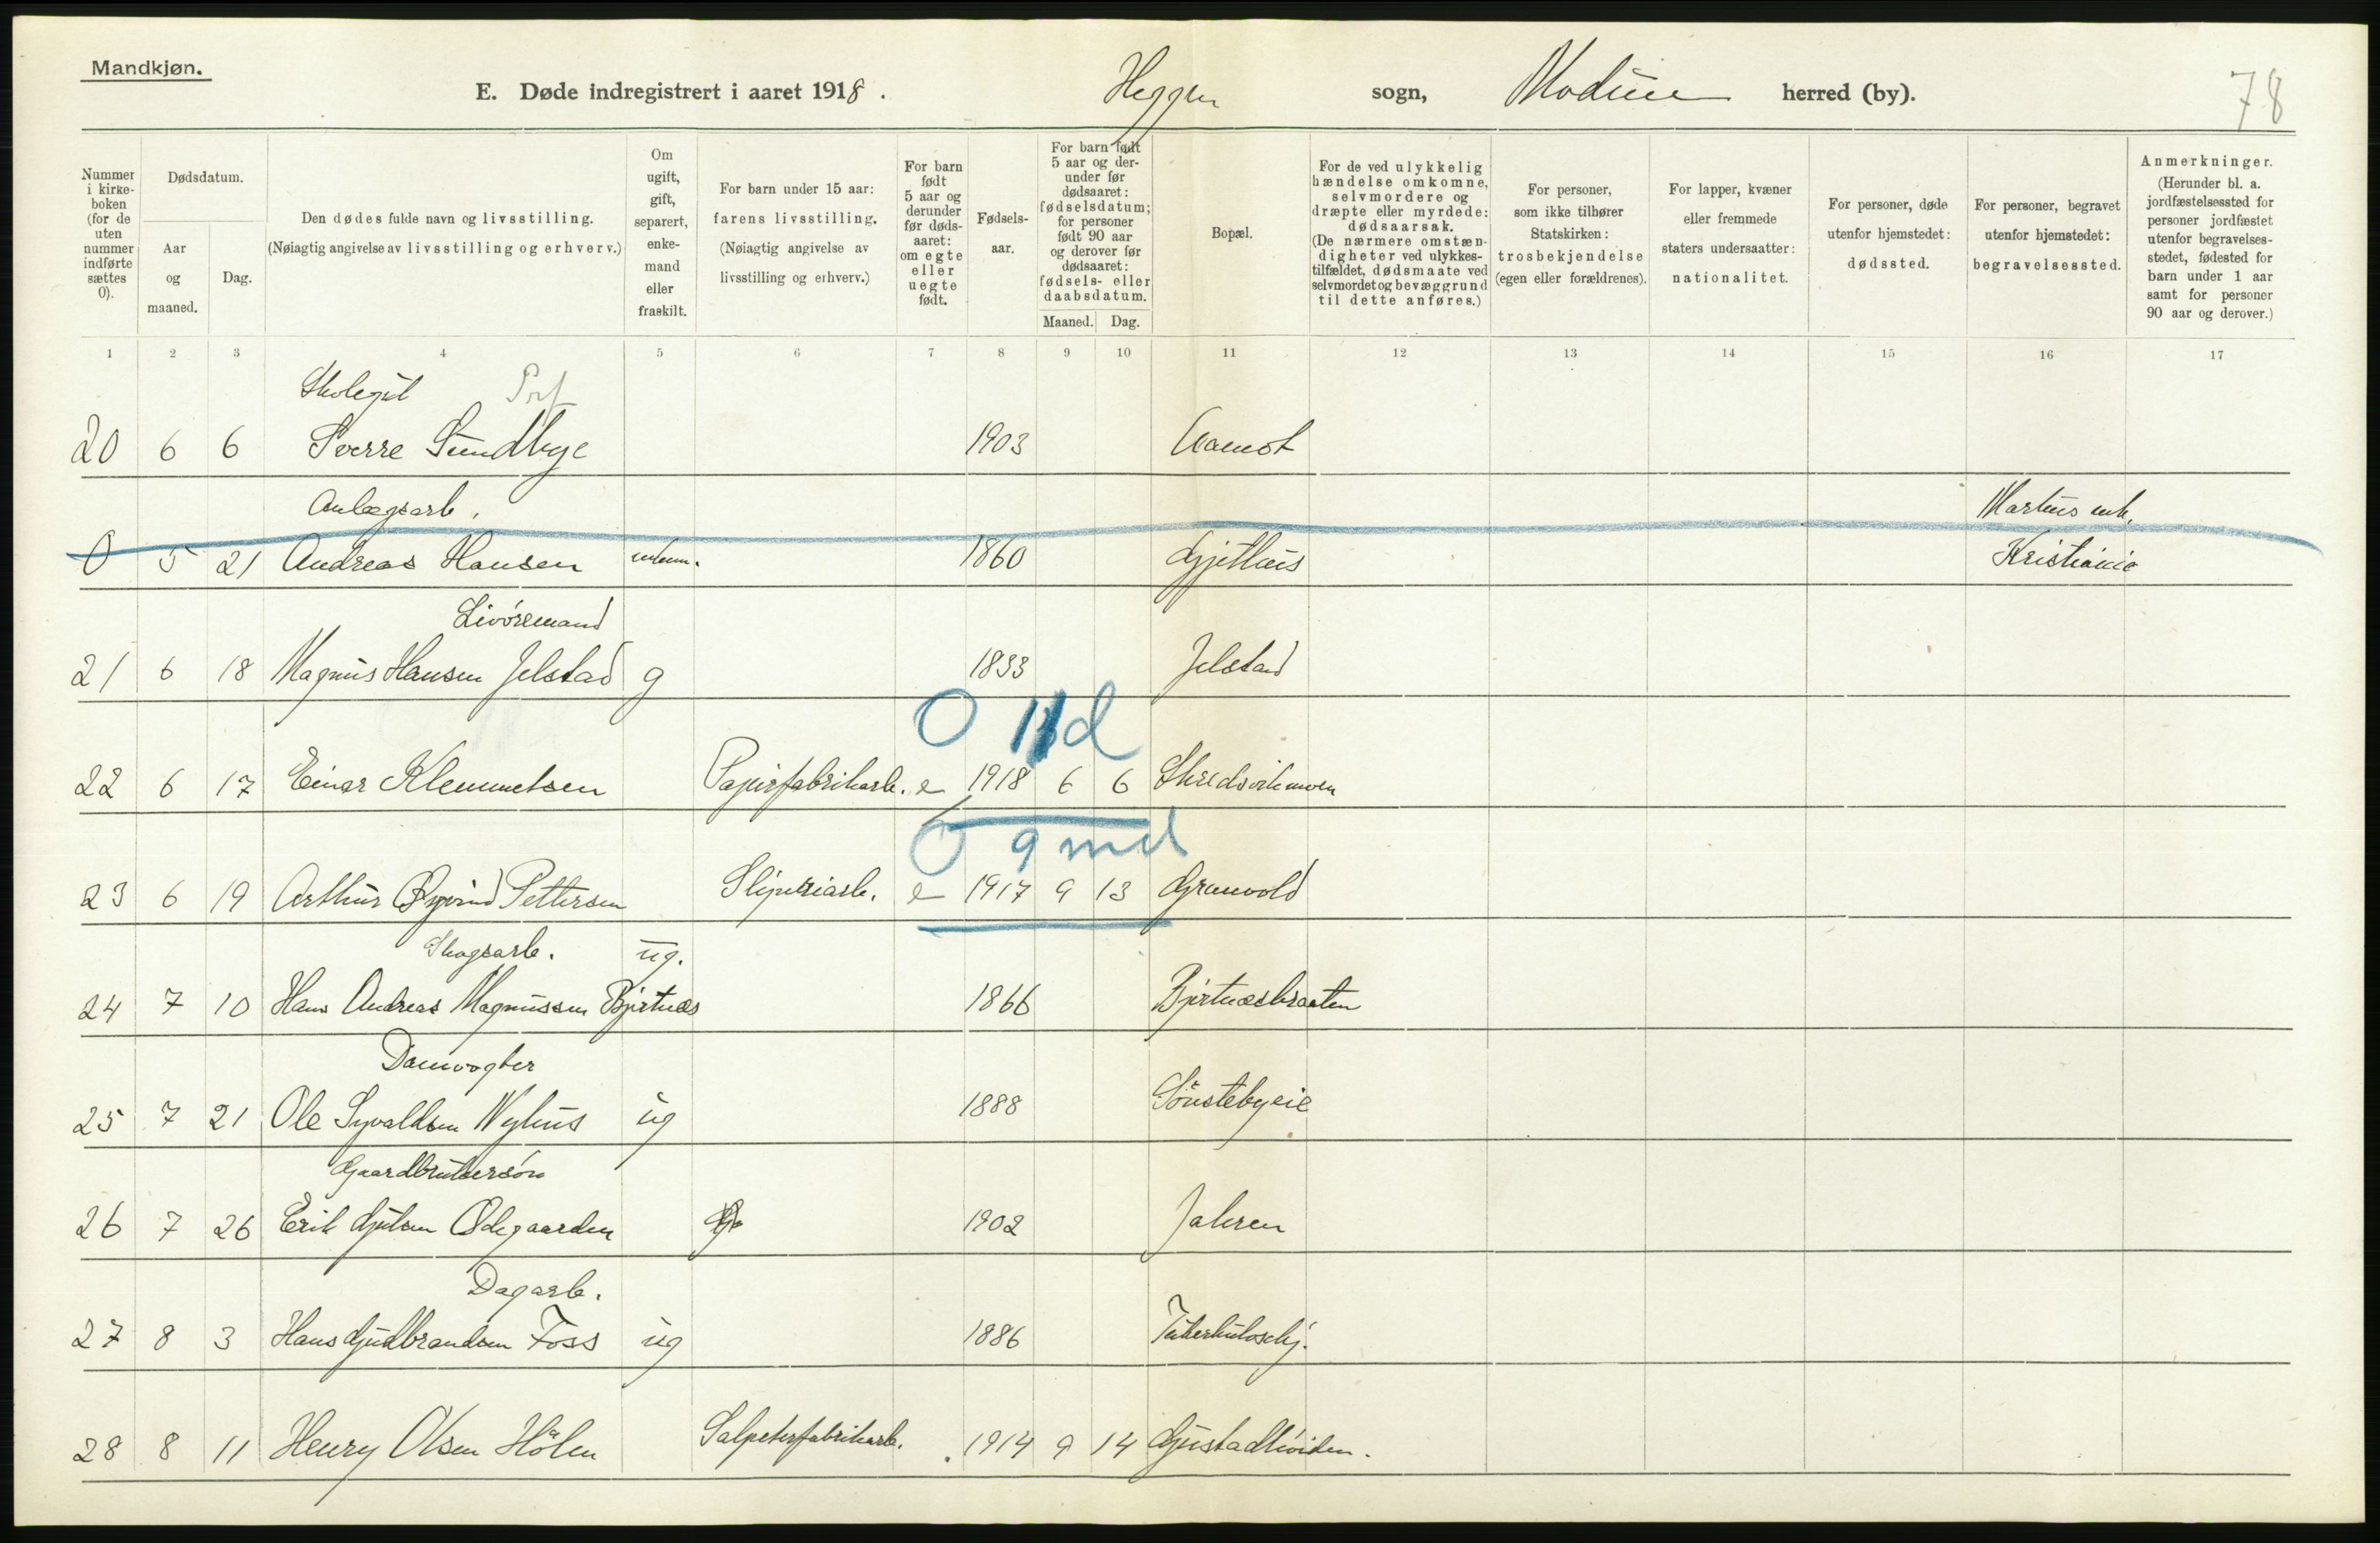 Mandkjøn.
E. Døde indregistrert i aaret 1918. Heggen sogn, Modum herred (by). 78
Nummer i kirkeboken (for de uten nummer indførte sættes 0).
Dødsdatum.
Aar og maaned.
Dag.
Den dødes fulde navn og livsstilling.
(Nøiagtig angivelse av livsstilling og erhverv.)
Om ugift, gift, separert, enkemand eller fraskilt.
For barn under 15 aar: farens livsstilling. (Nøiagtig angivelse av livsstilling og erhverv.)
For barn født 5 aar og derunder før dødsaaret: om egte eller uegte født.
Fødselsaar.
For barn født 5 aar og derunder før dødsaaret: fødselsdatum; for personer født 90 aar og derover før dødsaaret: fødsels- eller daabsdatum.
Maaned. Dag.
Bopæl.
For de ved ulykkelig hændelse omkomne, selvmordere og dræpte eller myrdede: dødsaarsak. (De nærmere omstændigheter ved ulykkestilfældet, dødsmaate ved selvmordet og bevæggrund til dette anføres.)
For personer, som ikke tilhører Statskirken: trosbekjendelse (egen eller forældrenes).
For lapper, kvæner eller fremmede staters undersaatter: nationalitet.
For personer, døde utenfor hjemstedet: dødssted.
For personer, begravet utenfor hjemstedet: begravelsessted.
Anmerkninger. (Herunder bl. a. jordfæstelsessted for personer jordfæstet utenfor begravelsesstedet, fødested for barn under 1 aar samt for personer 90 aar og derover.)
1 2 3 4 5 6 7 8 9 10 11 12 13 14 15 16 17
Skolegut
20 6 6 Sverre Sundbye 1903 Aamot
Anlægsarb. Markus mk.
0 5 21 Andreas Hansen enkem. 1860 Gjethus Kristiania
Livöremand
21 6 18 Magnus Hansen Jelstad g 1833 Jelstad
0 11 d
22 6 17 Einar Klemmetsen Papirfabrikarb. e 1918 6 6 Skredsvikmoen
0 9 md
23 6 19 Arthur Øyvind Pettersen Sliperiarb. e 1917 9 13 Grunvold
Skogsarb. ug.
24 7 10 Hans Andreas Magnussen Bjertnæs 1866 Bjertnæsbraaten
Damvogter
25 7 21 Ole Syvaldsen Nyhus ug 1888 Sönstebyeie
Gaardbrukersön
26 7 26 Erik Gulsen Ødegaarden 1902 Jahren
Dagarb.
27 8 3 Hans Gudbrandsen Foss ug 1886 Tuberkuloschj.
28 8 11 Henry Olsen Hölen Salpeterfabrikarb. 1914 9 14 Gustadhviden.